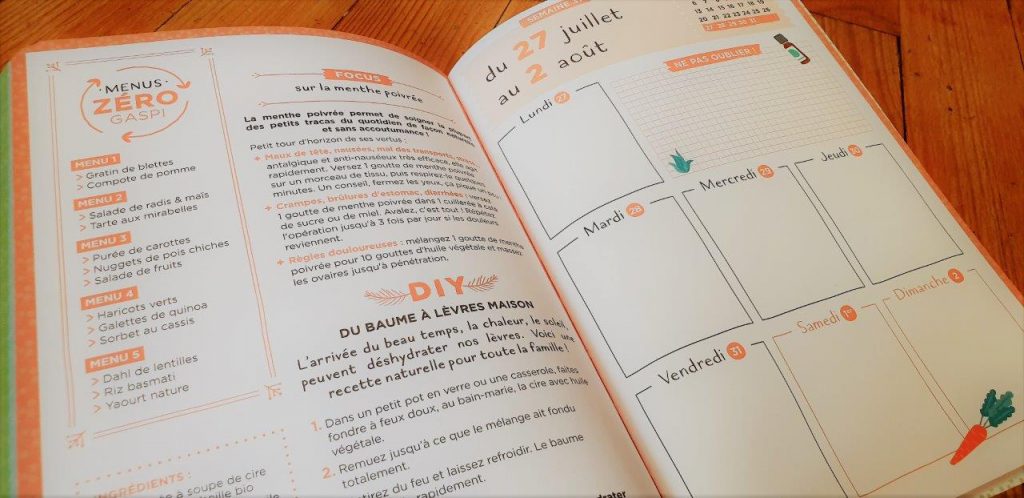 MENUS
ZÉRO
GASPI
MENU 1
> Gratin de blettes
> Compote de pomme
MENU 2
> Salade de radis & maïs
> Tarte aux mirabelles
MENU 3
> Purée de carottes
> Nuggets de pois chiches
> Salade de fruits
MENU 4
> Haricots verts
> Galettes de quinoa
> Sorbet au cassis
MENU 5
> Dahl de lentilles
> Riz basmati
> Yaourt nature
INGRÉDIENTS :
à soupe de cire
bio
FOCUS
sur la menthe poivrée
La menthe poivrée permet de soigner la plupart
des petits tracas du quotidien de façon naturelle
et sans accoutumance !
Petit tour d'horizon de ses vertus :
+ Maux de tête, nausées, mal des transports, stress
antalgique et anti-nauséeux très efficace, elle agit
rapidement. Versez 1 goutte de menthe poivrée
sur un morceau de tissu, puis respirez-le quelques
minutes. Un conseil, fermez les yeux, ça pique un peu !
+ Crampes, brûlures d'estomac, diarrhées : versez
1 goutte de menthe poivrée dans 1 cuillerée à café
de sucre ou de miel. Avalez, c'est tout ! Répétez
l'opération jusqu'à 3 fois par jour si les douleurs
reviennent.
+ Règles douloureuses : mélangez 1 goutte de menthe
poivrée pour 10 gouttes d'huile végétale et massez
les ovaires jusqu'à pénétration.
DIY
DU BAUME À LÈVRES MAISON
L'arrivée du beau temps, la chaleur, le soleil,
peuvent déshydrater nos lèvres. Voici une
recette naturelle pour toute la famille !
1. Dans un petit pot en verre ou une casserole, faites
fondre à feux doux, au bain-marie, la cire avec huile
végétale.
2. Remuez jusqu'à ce que le mélange ait fondu
totalement.
du feu et laissez refroidir. Le baume
rapidement.
SEMAINE
du 27 juillet
au 2 août
13 14 15 16 17 18 19
20 21 22 23 24 25 26
27 28 29 30 31
NE PAS OUBLIER !
Lundi 27
Mardi 28
Mercredi 29
Jeudi 30
Vendredi 31
Samedi 1er
Dimanche 2